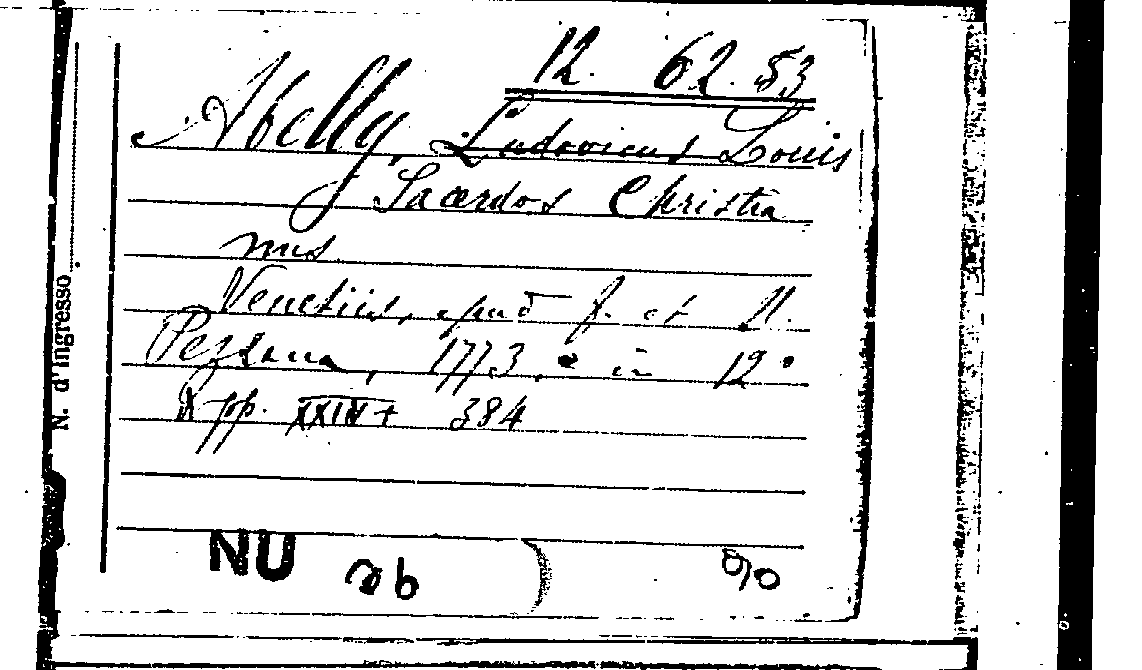 12. 62. 53
Abelly, Ludovicus Louis
Sacerdos Christia
nus
Venetiis, apud f. et N.
Pezzana, 1773. in 12°
pp. XXIV + 384
NU
N. d'ingresso